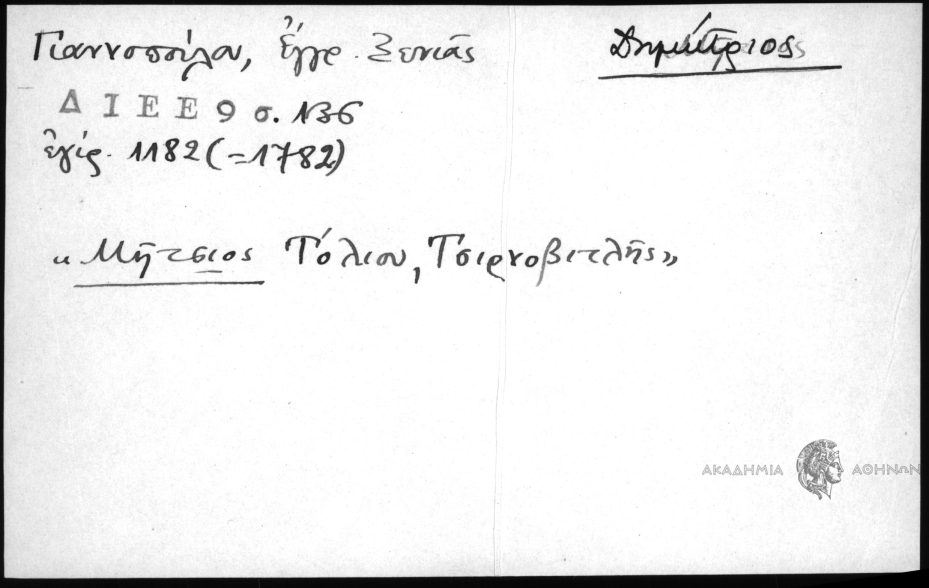 Γιαννοπούλου, Ἔγγρ. Ξενιᾶς
Δημήτριος
ΔΙΕΕ 9 σ. 136
ἐγίρ. 1182 (=1782)
«Μῆτσιος Τόλιου, Τσιρνοβιτλῆς»
ΑΚΑΔΗΜΙΑ ΑΘΗΝΩΝ